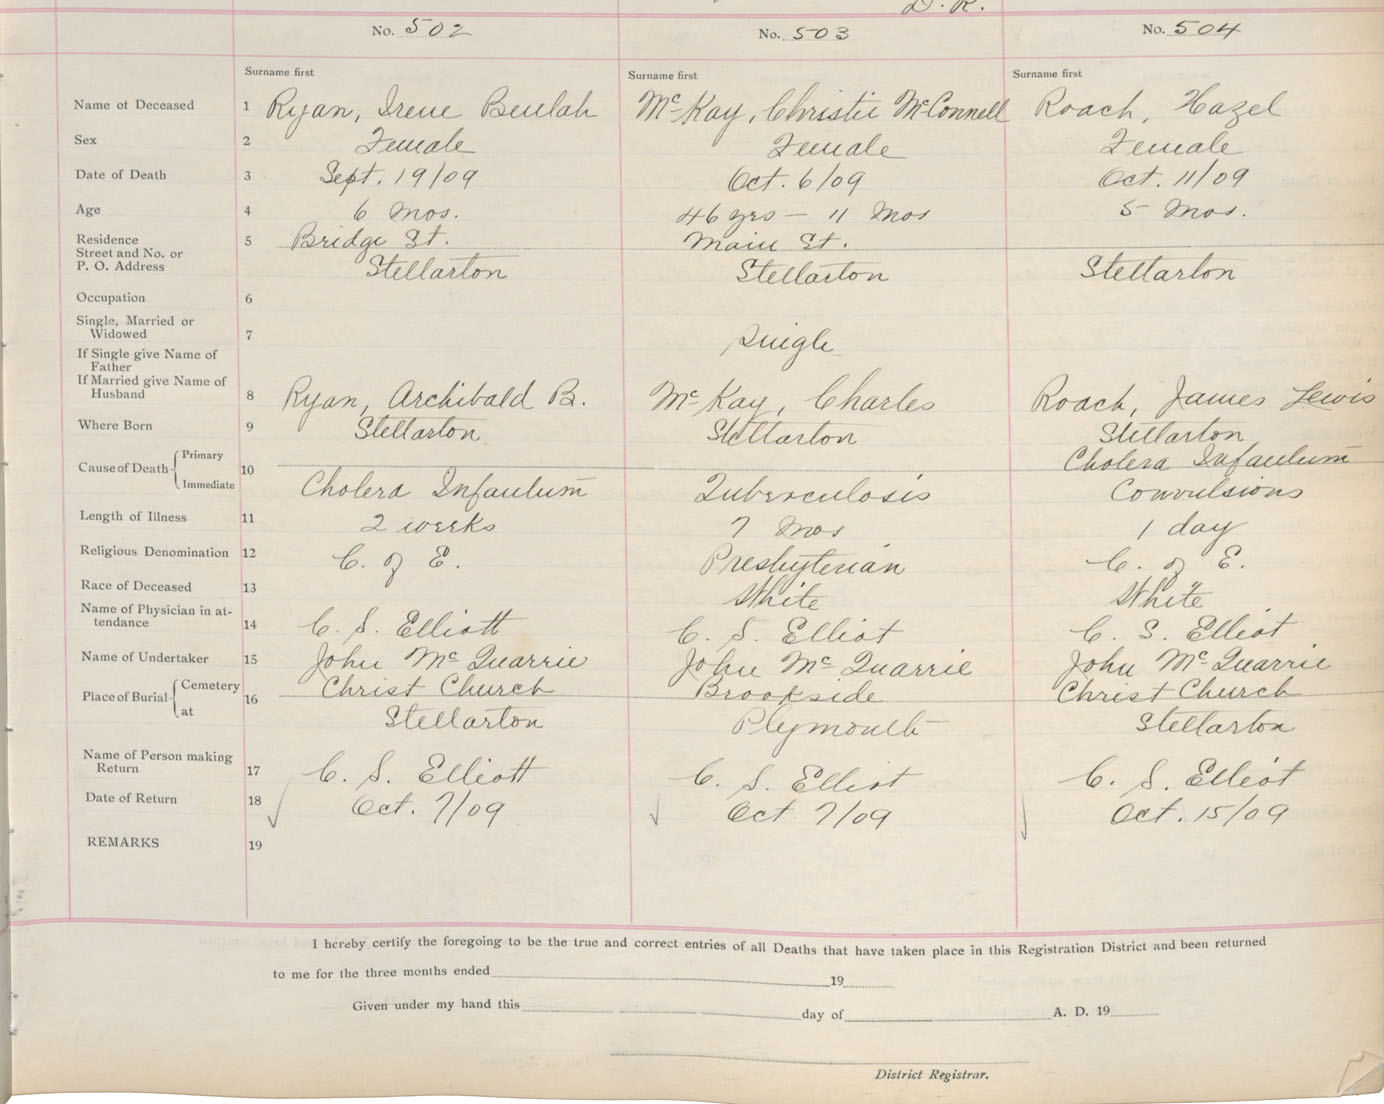 D. R.
No. 502 No. 503 No. 504
Surname first Surname first Surname first
Name of Deceased 1 Ryan, Irene Beulah McKay, Christie McConnell Roach, Hazel
Sex 2 Female Female Female
Date of Death 3 Sept. 19/09 Oct. 6/09 Oct. 11/09
Age 4 6 Mos. 46 yrs - 11 Mos 5 Mos.
Residence 5 Bridge St. Main St.
Street and No. or
P. O. Address Stellarton Stellarton Stellarton
Occupation 6
Single, Married or
Widowed 7 Single
If Single give Name of
Father
If Married give Name of
Husband 8 Ryan, Archibald B. McKay, Charles Roach, James Lewis
Where Born 9 Stellarton Stellarton Stellarton
Primary Cholera Infantum
Cause of Death 10
Immediate Cholera Infantum Tuberculosis Convulsions
Length of Illness 11 2 weeks 7 Mos 1 day
Religious Denomination 12 C. of E. Presbyterian C. of E.
Race of Deceased 13 White White
Name of Physician in at-
tendance 14 C. S. Elliott C. S. Elliot C. S. Elliot
Name of Undertaker 15 John McQuarrie John McQuarrie John McQuarrie
Cemetery Christ Church Brookside Christ Church
Place of Burial 16
at Stellarton Plymouth Stellarton
Name of Person making
Return 17 C. S. Elliott C. S. Elliot C. S. Elliot
Date of Return 18 Oct. 7/09 Oct 7/09 Oct. 15/09
REMARKS 19
I hereby certify the foregoing to be the true and correct entries of all Deaths that have taken place in this Registration District and been returned
to me for the three months ended 19
Given under my hand this day of A. D. 19
District Registrar.